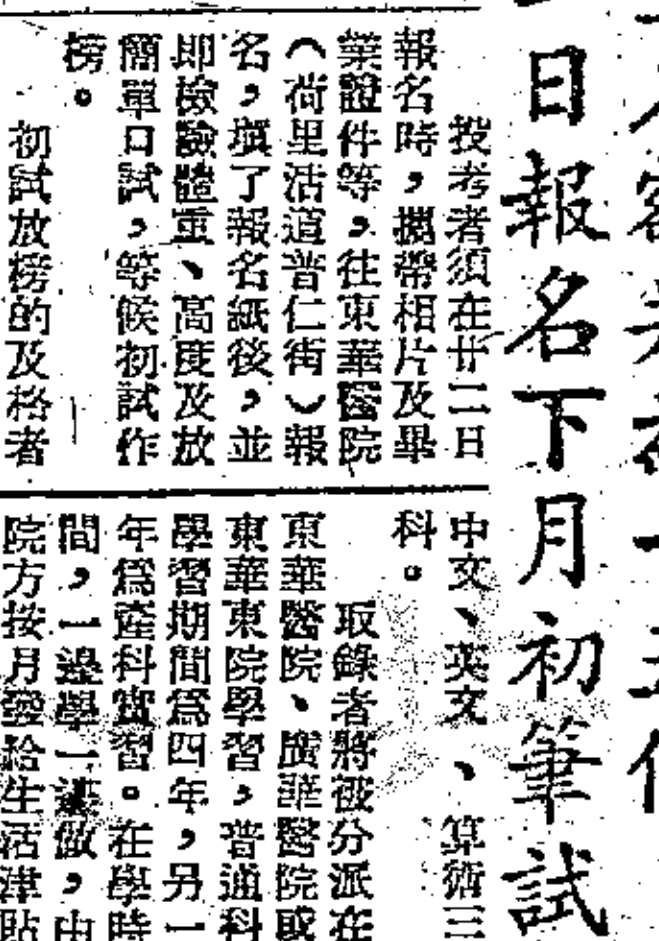 日報名下月初筆試
投考者須在廿二日
報名時，攜帶相片及畢
業證件等，往東華醫院
（荷里活道普仁街）報
名，填了報名紙後，並
即檢驗體重、高度及放
簡單口試，等候初試作
榜。
初試放榜的及格者
中文、英文、算術三
科。
取錄者將被分派在
東華醫院、廣華醫院或
東華東院學習，普通科
學習期間爲四年，另一
年爲產科實習。在學時
間，一邊學一邊做，由
院方按月發給生活津貼